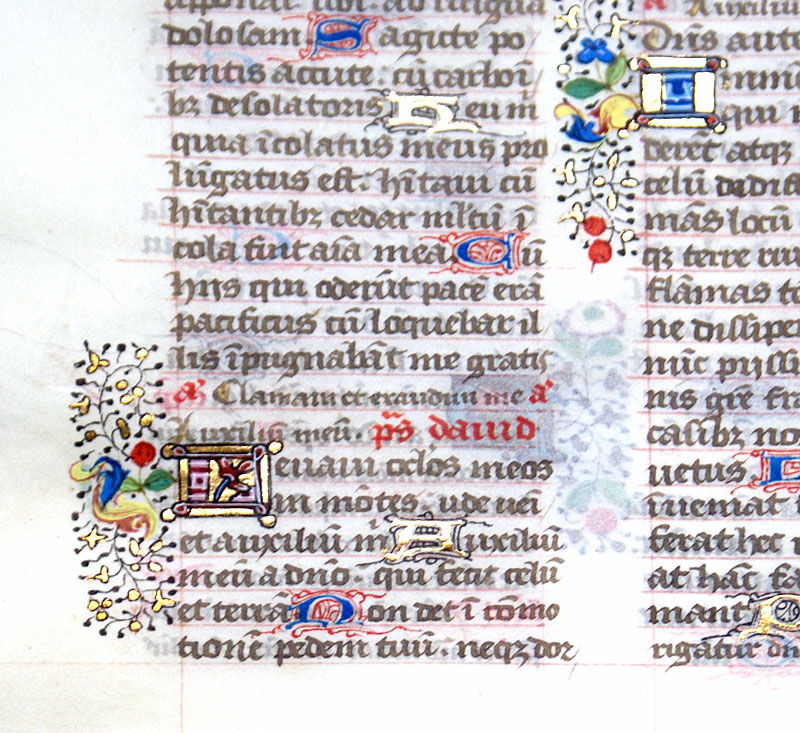 dolosam Sagicte po
tentis accute: cũ carboĩ
bꝫ desolatoris Heu m̃
quia ĩcolatus meus pro
lũgatus est. hĩtaui cũ
hĩtantibꝫ cedar ml̃tũ ĩ
cola fuit aĩa mea Cũ
hijs qui oderũt pacẽ erã
pacificus cũ loquebar il
lis ĩpugnabãt me gratis
añ Clamaui et exaudiuit me añ
Auxiliũ meũ. p̃s dauid
Leuaui oclos meos
in mõtes. ũde ueĩ
et auxiliũ m̃ Auxiliũ
meũ a dño. qui fecit celũ
et terrã Non det ĩ cõmo
tionẽ pedem tuũ. neqꝫ dor
Auxiliu
Dñs aute
Inmẽ
qui
deret atqꝫ
celũ
mãs locũ
qꝫ terre
flãmas
ne dissipe
nũc pijssi
nis gre
casibꝫ no
uetus.
ĩueniat
ferat hec
at hãc fa
mant
rigatur dñ